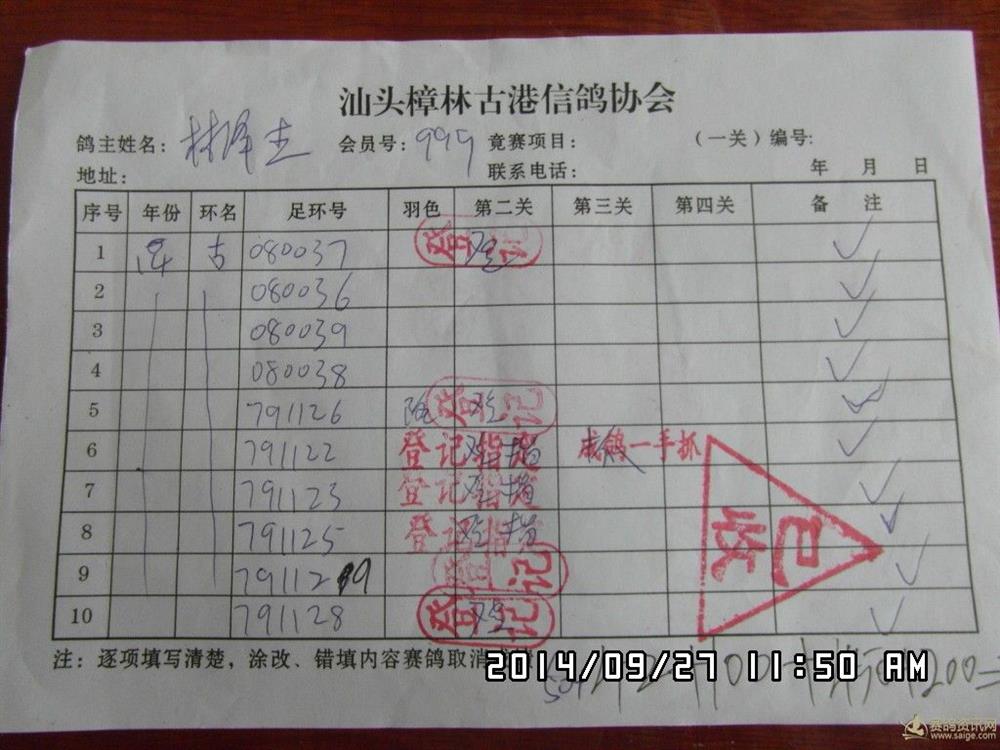 汕头樟林古港信鸽协会
鸽主姓名: 林泽圭 会员号: 999 竟赛项目: (一关) 编号:
地址: 联系电话: 年 月 日
序号 年份 环名 足环号 羽色 第二关 第三关 第四关 备 注
1 古 080037 登记 ✓
2 080036 ✓
3 080039 ✓
4 080038 ✓
5 791126 登记 ✓
6 791122 登记指 成鸽一手抓 ✓
7 791123 登记指 ✓
8 791125 登记指 ✓
9 7911219 登记 ✓
10 791128 登记 ✓
已收
注: 逐项填写清楚, 涂改、错填内容赛鸽取消
2014/09/27 11:50 AM
赛鸽资讯网
www.saige.com